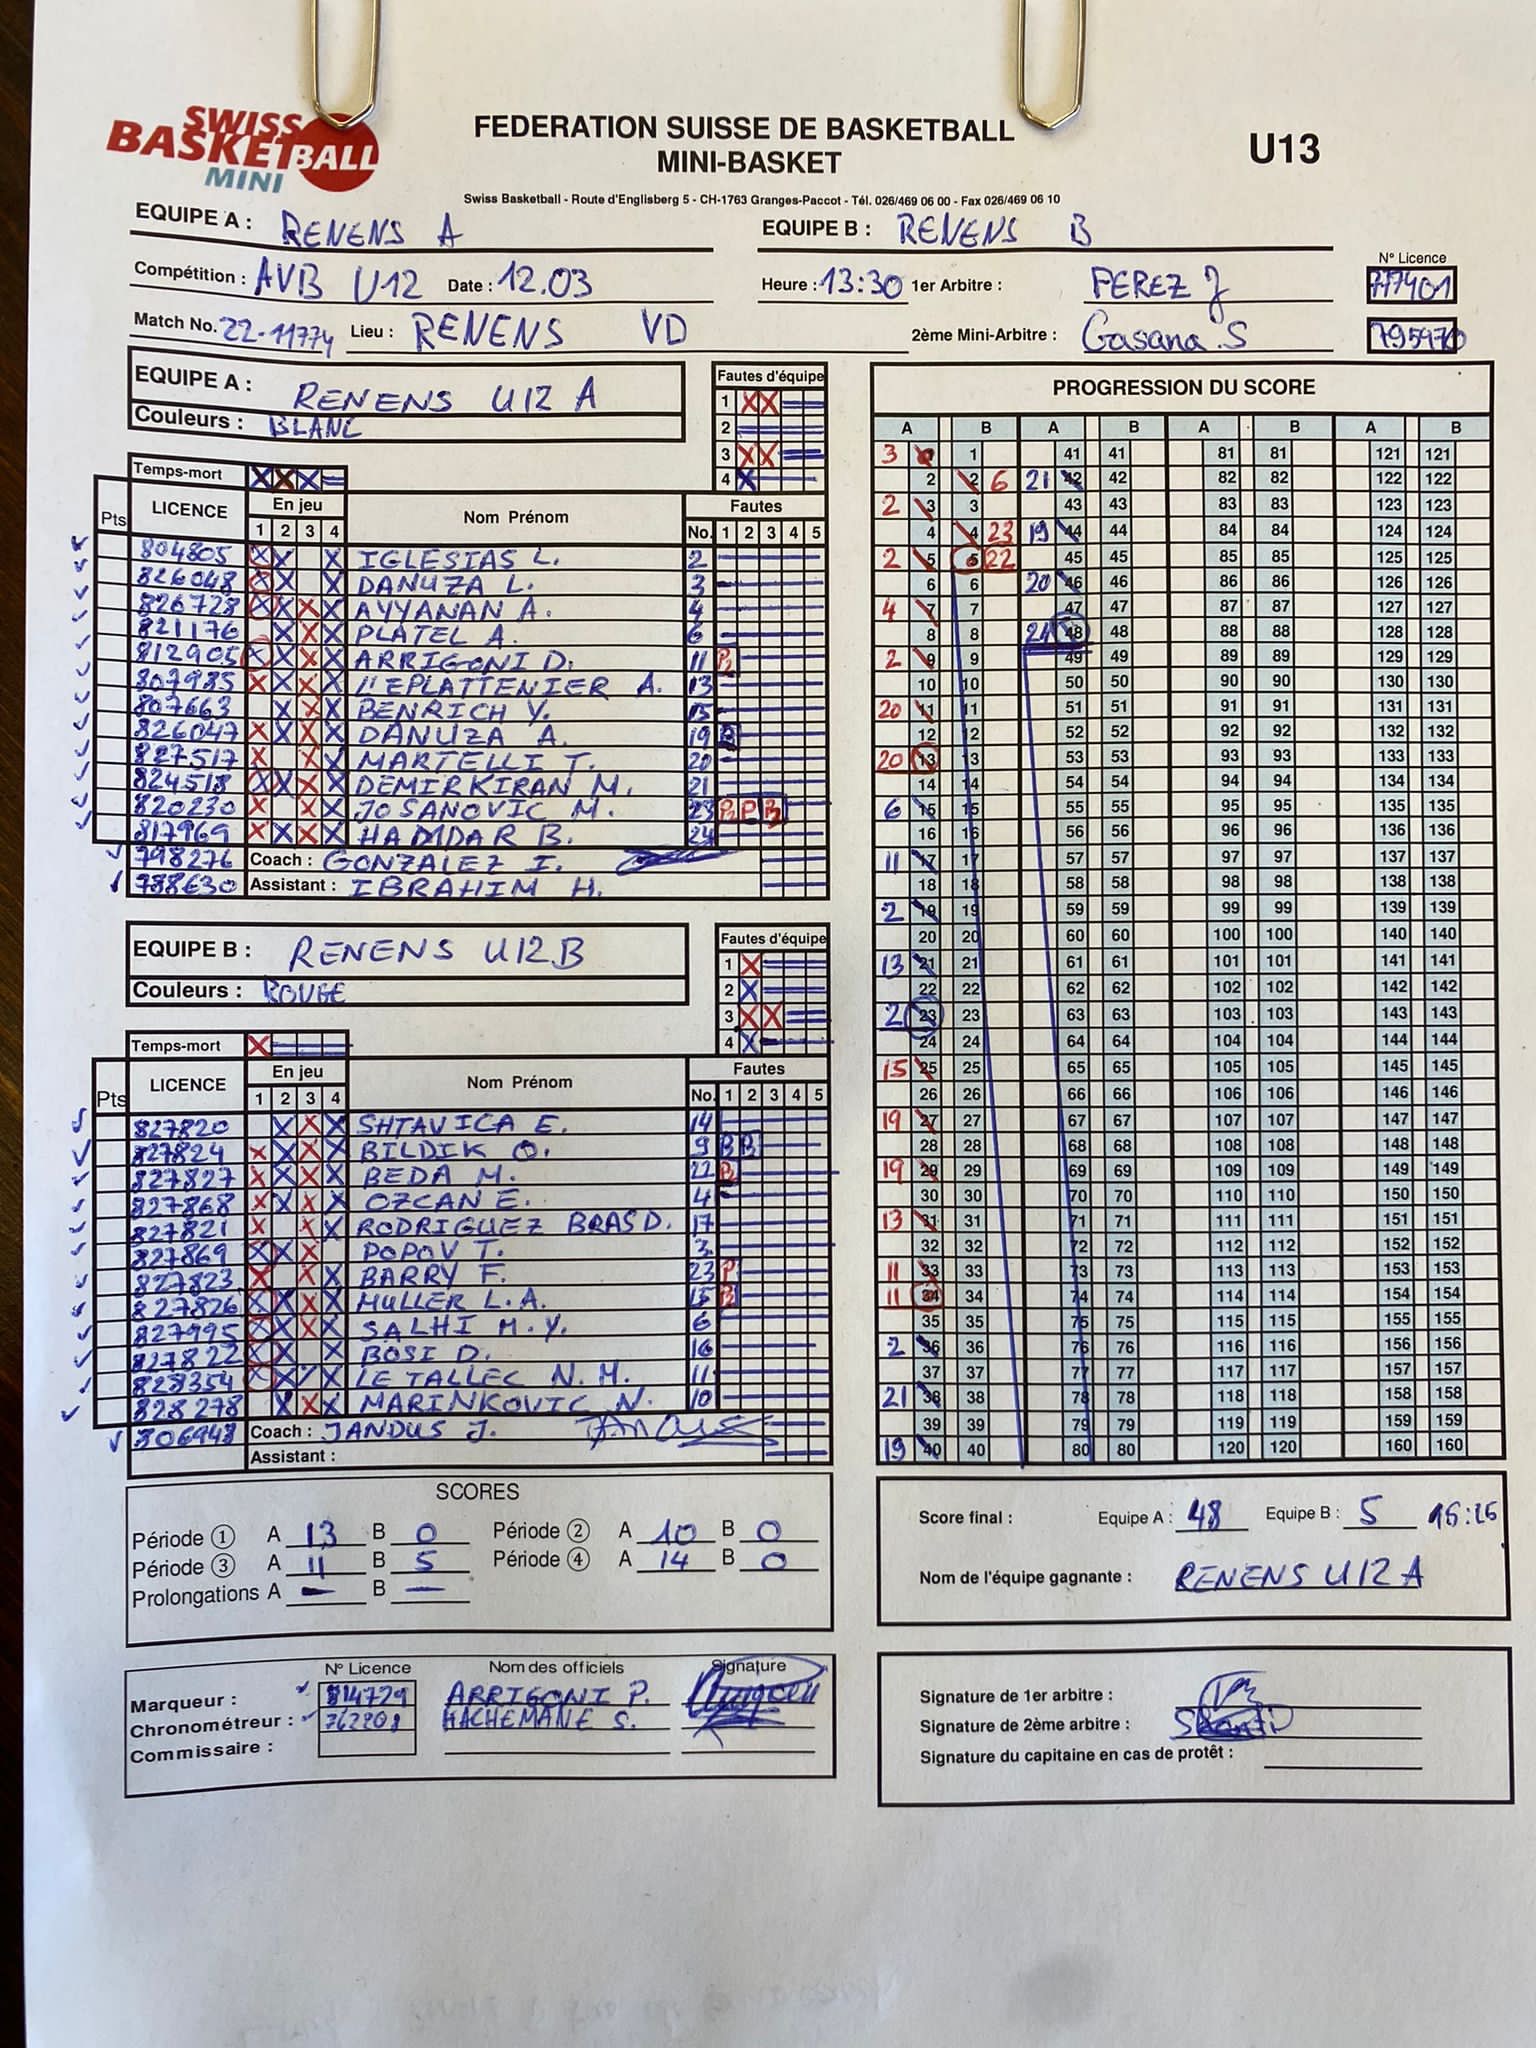 SWISS
BASKETBALL
MINI
FEDERATION SUISSE DE BASKETBALL
MINI-BASKET
U13
Swiss Basketball - Route d'Englisberg 5 - CH-1763 Granges-Paccot - Tél. 026/469 06 00 - Fax 026/469 06 10
EQUIPE A : RENENS A EQUIPE B : RENENS B
N° Licence
Compétition : AVB U12 Date : 12.03 Heure : 13:30 1er Arbitre : PEREZ J 777401
Match No. 22-11774 Lieu : RENENS VD 2ème Mini-Arbitre : Gasana.S 795970
EQUIPE A : RENENS U12 A
Couleurs : BLANC
Fautes d'équipe
1 X X
2
3 X X
4 X
Temps-mort X X X
Pts LICENCE En jeu Nom Prénom Fautes
1 2 3 4 No. 1 2 3 4 5
804805 X X X IGLESIAS L. 2
826048 X X X DANUZA L. 3
826728 X X X X AYYANAN A. 4
821176 X X X PLATEL A. 6
812905 X X X X ARRIGONI D. 11 P2
807985 X X X X L'EPLATTENIER A. 13
807663 X X X BENRICH Y. 15
826047 X X X X DANUZA A. 19
827517 X X X MARTELLI T. 20
824518 X X X X DEMIRKIRAN M. 21
820230 X X X JOSANOVIC M. 23 P2 P P2
817969 X X X X HADIDAR B. 24
798276 Coach : GONZALEZ I.
788630 Assistant : IBRAHIM H.
EQUIPE B : RENENS U12B
Couleurs : ROUGE
Fautes d'équipe
1 X
2 X
3 X X
4 X
Temps-mort X
Pts LICENCE En jeu Nom Prénom Fautes
1 2 3 4 No. 1 2 3 4 5
827820 X X X SHTAVICA E. 14
827824 X X X X BILDIK O. 9 P2 P2
827827 X X X X BEDA M. 22 P2
827868 X X X X OZCAN E. 4
827821 X X X RODRIGUEZ BRAS D. 17
827869 X X X POPOV T. 3
827823 X X X BARRY F. 23 P
827826 X X X X MULLER L.A. 15 P2
827995 X X X X SALHI M.Y. 6
827822 X X X BOSI D. 16
828354 X X X X LE TALLEC N.M. 11
828278 X X X MARINKOVIC N. 10
806948 Coach : JANDUS J.
Assistant :
PROGRESSION DU SCORE
A B A B A B A B
3 1 41 41 81 81 121 121
2 2 6 21 42 42 82 82 122 122
2 3 3 43 43 83 83 123 123
4 4 23 19 44 44 84 84 124 124
2 5 5 22 45 45 85 85 125 125
6 6 20 46 46 86 86 126 126
4 7 7 47 47 87 87 127 127
8 8 24 48 48 88 88 128 128
2 9 9 49 49 89 89 129 129
10 10 50 50 90 90 130 130
20 11 11 51 51 91 91 131 131
12 12 52 52 92 92 132 132
20 13 13 53 53 93 93 133 133
14 14 54 54 94 94 134 134
6 15 15 55 55 95 95 135 135
16 16 56 56 96 96 136 136
11 17 17 57 57 97 97 137 137
18 18 58 58 98 98 138 138
2 19 19 59 59 99 99 139 139
20 20 60 60 100 100 140 140
13 21 21 61 61 101 101 141 141
22 22 62 62 102 102 142 142
2 23 23 63 63 103 103 143 143
24 24 64 64 104 104 144 144
15 25 25 65 65 105 105 145 145
26 26 66 66 106 106 146 146
19 27 27 67 67 107 107 147 147
28 28 68 68 108 108 148 148
19 29 29 69 69 109 109 149 149
30 30 70 70 110 110 150 150
13 31 31 71 71 111 111 151 151
32 32 72 72 112 112 152 152
11 33 33 73 73 113 113 153 153
11 34 34 74 74 114 114 154 154
35 35 75 75 115 115 155 155
2 36 36 76 76 116 116 156 156
37 37 77 77 117 117 157 157
21 38 38 78 78 118 118 158 158
39 39 79 79 119 119 159 159
19 40 40 80 80 120 120 160 160
SCORES
Période 1 A 13 B 0 Période 2 A 10 B 0
Période 3 A 11 B 5 Période 4 A 14 B 0
Prolongations A — B —
Score final : Equipe A : 48 Equipe B : 5 15:26
Nom de l'équipe gagnante : RENENS U12 A
N° Licence Nom des officiels Signature
Marqueur : 814729 ARRIGONI P.
Chronométreur : 762208 HACHEMANE S.
Commissaire :
Signature de 1er arbitre :
Signature de 2ème arbitre :
Signature du capitaine en cas de protêt :